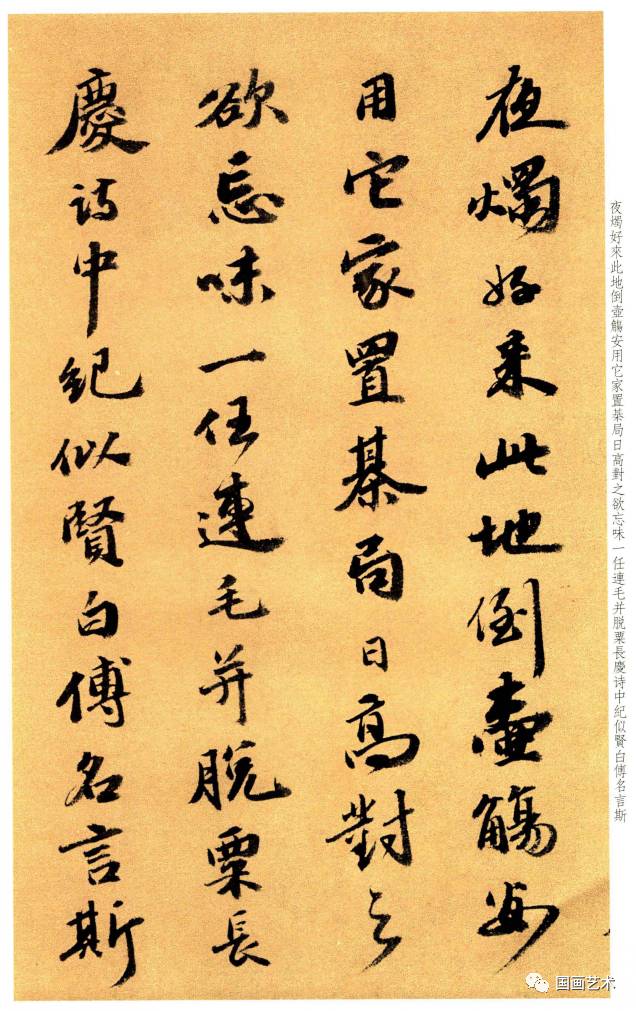 夜燭好来此地倒壷觴安
用它家置棊局日高對之
欲忘味一任連毛并脫粟長
慶诗中紀似賢白傅名言斯
夜燭好來此地倒壺觴安用它家置棊局日高對之欲忘味一任連毛并脱粟長慶诗中紀似賢白傅名言斯
国画艺术